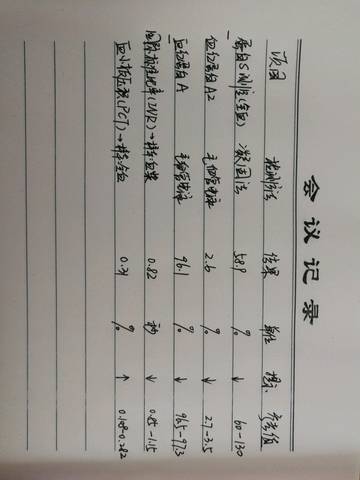 会议记录
项目 检测方法 结果 单位 提示 参考值
蛋白S测定(全血) 凝固法 58.9 % ↓ 60-130
血红蛋白A2 毛细管电泳 2.6 % ↓ 2.7-3.5
血红蛋白A 毛细管电泳 96.1 % ↓ 96.5-97.3
国际标准化比率(INR)→样本:血浆 0.82 秒 ↓ 0.85-1.15
血小板压积(PCT)→样本:全血 0.31 % ↑ 0.108-0.282